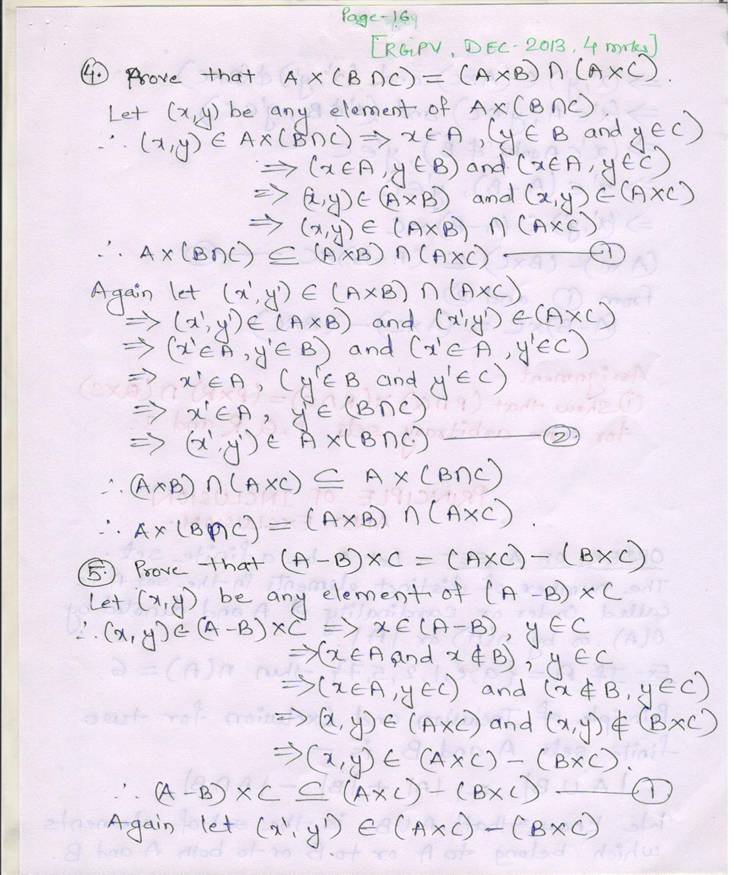 Page-16
[RGPV, DEC-2013, 4 mrks]
4. Prove that A×(B∩C) = (A×B) ∩ (A×C).
Let (x,y) be any element of A×(B∩C).
∴ (x,y) ∈ A×(B∩C) ⇒ x∈A, (y∈B and y∈C)
⇒ (x∈A, y∈B) and (x∈A, y∈C)
⇒ (x,y)∈(A×B) and (x,y)∈(A×C)
⇒ (x,y)∈ (A×B) ∩ (A×C)
∴ A×(B∩C) ⊆ (A×B) ∩ (A×C) ①
Again let (x',y') ∈ (A×B) ∩ (A×C)
⇒ (x',y')∈ (A×B) and (x',y') ∈(A×C)
⇒ (x'∈A, y'∈B) and (x'∈A, y'∈C)
⇒ x'∈A, (y'∈B and y'∈C)
⇒ x'∈A, y'∈(B∩C)
⇒ (x',y')∈ A×(B∩C) ②
∴ (A×B) ∩ (A×C) ⊆ A×(B∩C)
∴ A×(B∩C) = (A×B) ∩ (A×C).
5. Prove that (A-B)×C = (A×C)-(B×C)
Let (x,y) be any element of (A-B)×C
∴ (x,y)∈(A-B)×C ⇒ x∈(A-B), y∈C
⇒(x∈A and x∉B), y∈C
⇒(x∈A, y∈C) and (x∉B, y∈C)
⇒(x,y)∈(A×C) and (x,y)∉(B×C)
⇒(x,y)∈ (A×C)-(B×C).
∴ (A-B)×C ⊆ (A×C)-(B×C) ①
Again let (x' y') ∈ (A×C)-(B×C)